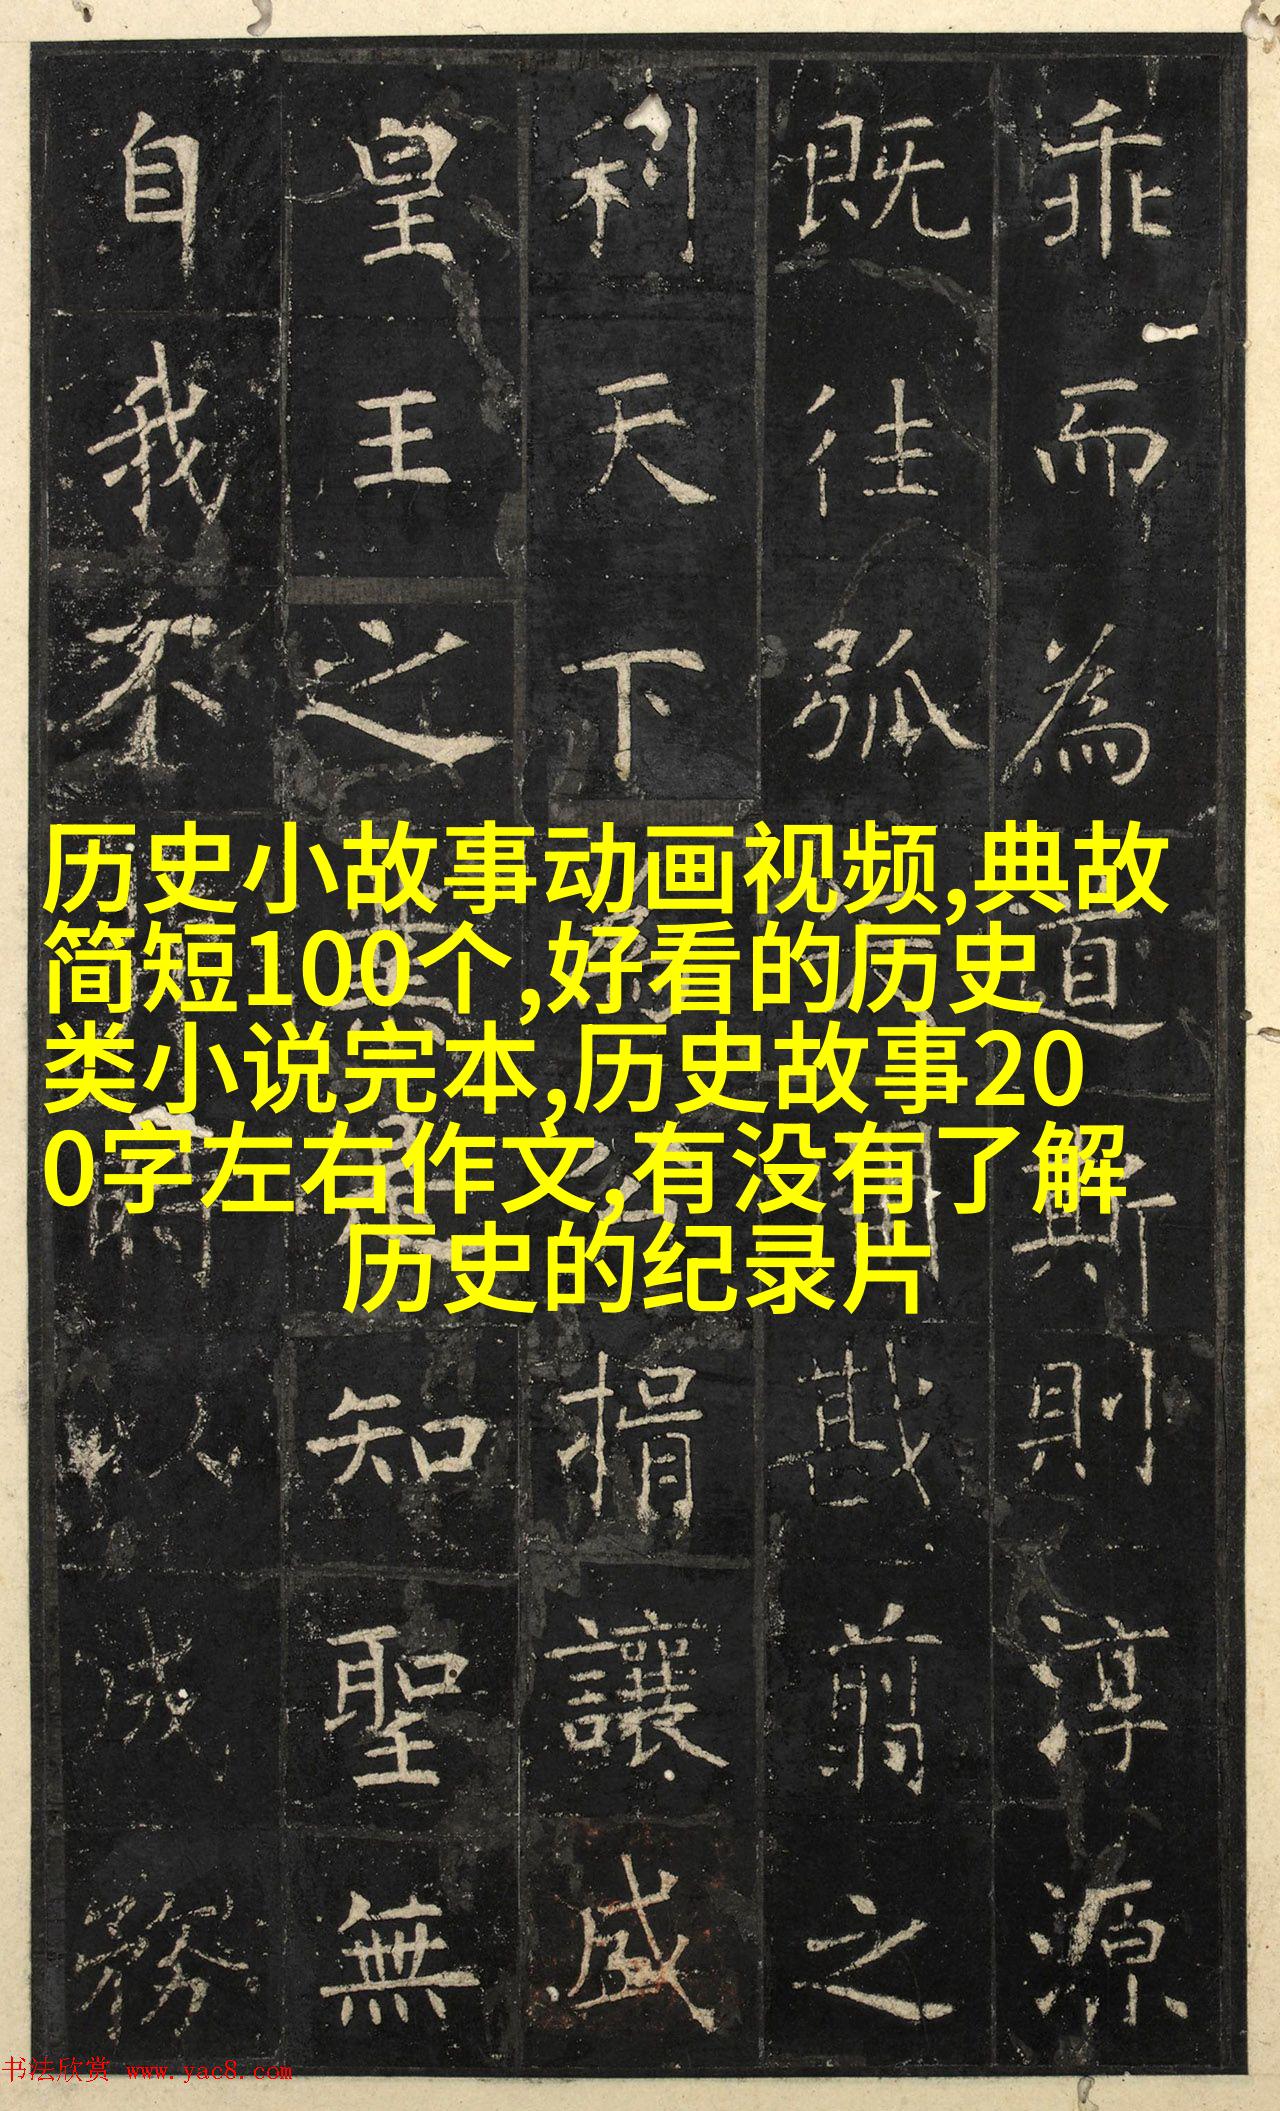 乖而為道斯則淳源
既往弧戡翦之
利天下捐讓
皇王之知聖無
自我不務
历史小故事动画视频,典故
简短100个,好看的历史
类小说完本,历史故事20
0字左右作文,有没有了解
历史的纪录片
书法欣赏 www.yac8.com